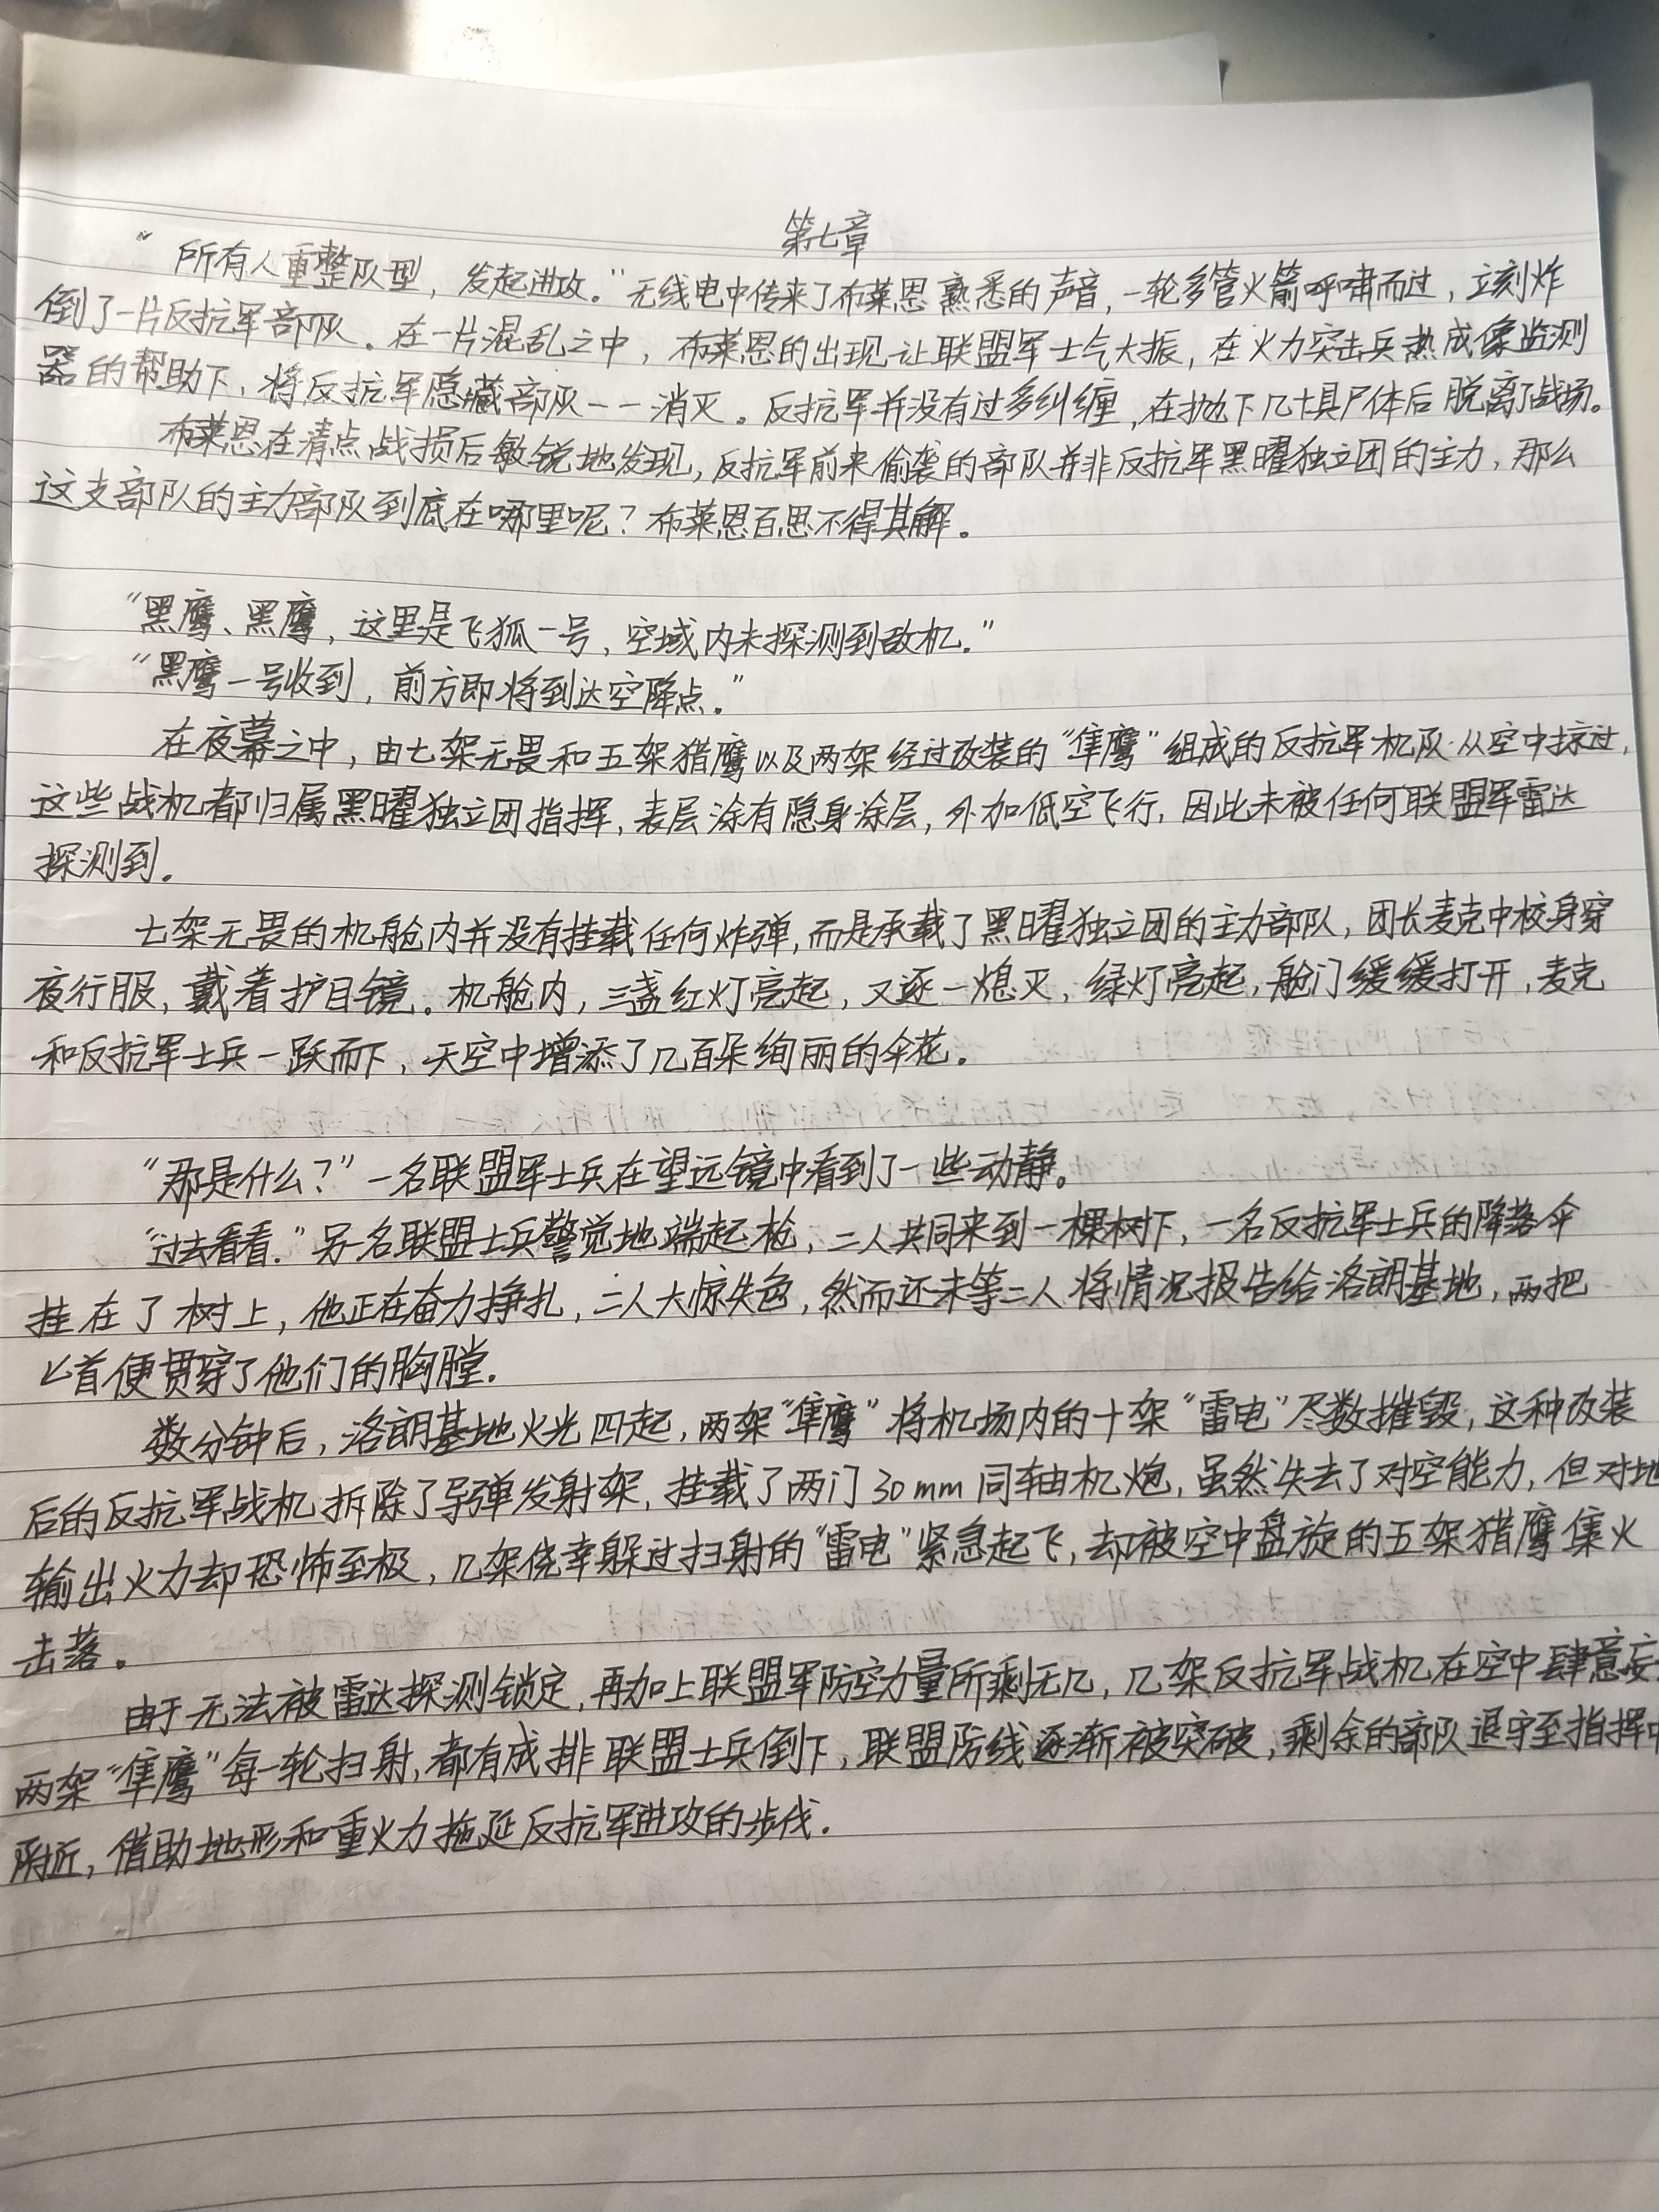 第七章
“所有人重整队型，发起进攻。”无线电中传来了布莱恩熟悉的声音，一轮多管火箭呼啸而过，立刻炸
倒了一片反抗军部队。在一片混乱之中，布莱恩的出现让联盟军士气大振，在火力突击兵热成像监测
器的帮助下，将反抗军隐藏部队一一消灭。反抗军并没有过多纠缠，在抛下几十具尸体后脱离了战场。
布莱恩在清点战损后敏锐地发现，反抗军前来偷袭的部队并非反抗军黑曜独立团的主力，那么
这支部队的主力部队到底在哪里呢？布莱恩百思不得其解。
“黑鹰、黑鹰，这里是飞狐一号，空域内未探测到敌机。”
“黑鹰一号收到，前方即将到达空降点。”
在夜幕之中，由七架无畏和五架猎鹰以及两架经过改装的“隼鹰”组成的反抗军机队从空中掠过，
这些战机都归属黑曜独立团指挥，表层涂有隐身涂层，外加低空飞行，因此未被任何联盟军雷达
探测到。
七架无畏的机舱内并没有挂载任何炸弹，而是承载了黑曜独立团的主力部队，团长麦克中校身穿
夜行服，戴着护目镜。机舱内，三盏红灯亮起，又逐一熄灭，绿灯亮起，舱门缓缓打开，麦克
和反抗军士兵一跃而下，天空中增添了几百朵绚丽的伞花。
“那是什么？”一名联盟军士兵在望远镜中看到了一些动静。
“过去看看。”另一名联盟士兵警觉地端起枪，二人共同来到一棵树下，一名反抗军士兵的降落伞
挂在了树上，他正在奋力挣扎，二人大惊失色，然而还未等二人将情况报告给洛朗基地，两把
匕首便贯穿了他们的胸膛。
数分钟后，洛朗基地火光四起，两架“隼鹰”将机场内的十架“雷电”尽数摧毁，这种改装
后的反抗军战机拆除了导弹发射架，挂载了两门30mm同轴机炮，虽然失去了对空能力，但对地
输出火力却恐怖至极，几架侥幸躲过扫射的“雷电”紧急起飞，却被空中盘旋的五架猎鹰集火
击落。
由于无法被雷达探测锁定，再加上联盟军防空力量所剩无几，几架反抗军战机在空中肆意妄
两架“隼鹰”每一轮扫射，都有成排联盟士兵倒下，联盟防线逐渐被突破，剩余的部队退守至指挥中
附近，借助地形和重火力拖延反抗军进攻的步伐。